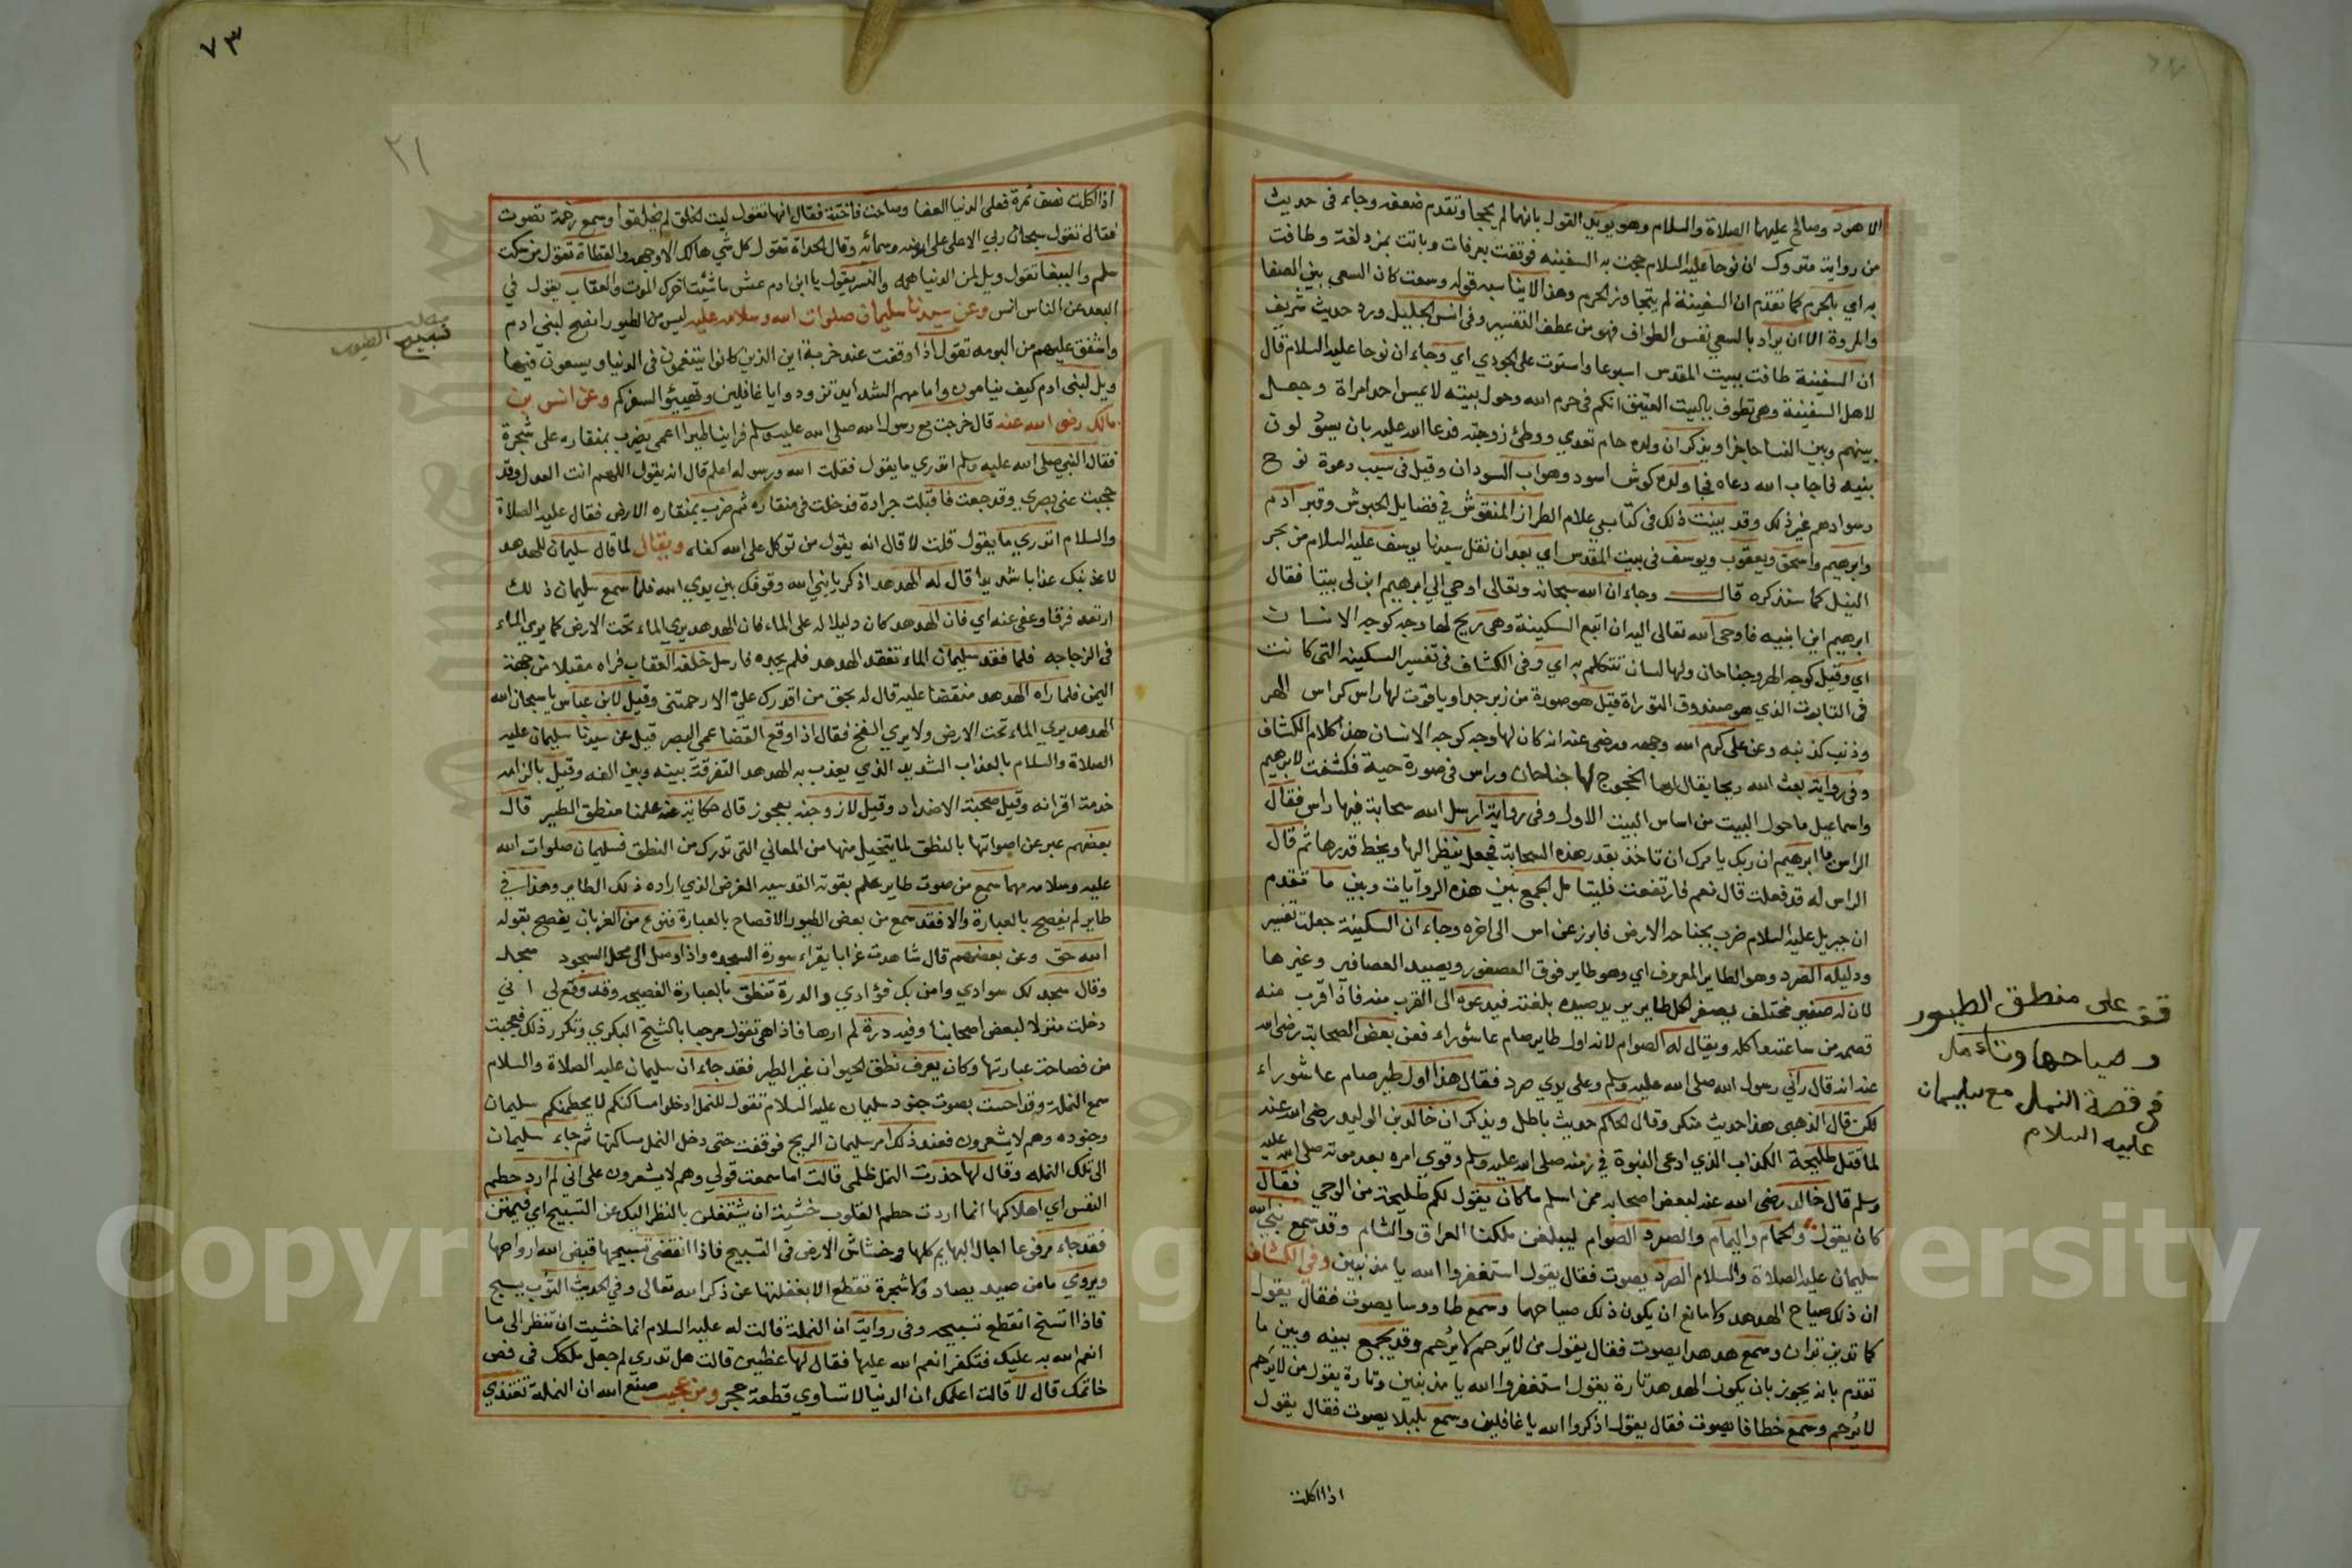 الا هود وصالح عليهما الصلاة والسلام وهو يويد القول بانهما لم يحجا وتقدم ضعفه وجاء في حديث
من رواية متروك ان نوحا عليه السلام حجت به السفينه فوقفت بعرفات وباتت بمزدلفة وطافت
به اي بالحرم كما تقدم ان السفينة لم يتجاوز الحرم وهذا لا يناسبه قوله وسعت كان السعي بين الصفا
والمروة الا ان يراد بالسعي نفس الطواف فهو من عطف التفسير وفي انس الجليل ورد حديث شريف
ان السفينة طافت ببيت المقدس اسبوعا واستوت على الجودي اي وجاء ان نوحا عليه السلام قال
لاهل السفينة وهي تطوف بالبيت العتيق انكم في حرم الله وحول بيته لا يمس احد امراة وجعل
بينهم وبين النسا حاجزا ويذكر ان ولده حام تعدي ووطئ زوجته فدعا الله عليه بان يسود لون
بنيه فاجاب الله دعاه فجا ولده كوش اسود وهو اب السودان وقيل في سبب دعوة نوح
وسوادهم غير ذلك وقد بينت ذلك في كتابي علام الطراز المنقوش في فضايل الحبوش وقبر ادم
وابرهيم واسحق ويعقوب ويوسف في بيت المقدس اي بعد ان نقل سيدنا يوسف عليه السلام من بحر
النيل كما سنذكره قال وجاء ان الله سبحانه وتعالى اوحي الي ابرهيم ابن لي بيتا فقال
ابرهيم اين ابنيه فاوحى الله تعالى اليه ان اتبع السكينة وهي ريح لها وجه كوجه الانسان
اي وقيل كوجه الهر وجناحان ولها لسان تتكلم به اي وفي الكشاف في تفسير السكينه التي كانت
في التابوت الذي هو صندوق التوراة قيل هو صورة من زبرجد او ياقوت لها راس كراس الهر
وذنب كذنبه وعن علي كرم الله وجهه ورضي عنه انه كان لها وجه كوجه الانسان هذا كلام الكشاف
وفي رواية بعث الله ريحا يقال لها الخجوج لها جناحان وراس في صورة حية فكشفت لابرهيم
واسماعيل ما حول البيت من اساس البيت الاول وفي رواية ارسل الله سحابة فيها راس فقال
الراس يا ابرهيم ان ربك يامرك ان تاخذ بقدر هذه السحابة فجعل ينظر الها ويخط قدرها ثم قال
الراس له قد فعلت قال نعم فارتفعت فليتامل الجمع بين هذه الروايات وبين ما تقدم
ان جبريل عليه السلام ضرب بجناحه الارض فابرز عن اس الى اخره وجاء ان السكينة جعلت تسير
ودليله الصرد وهو الطاير المعروف اي وهو طاير فوق العصفور ويصيد العصافير وغيرها
لان له صفير مختلف يصفر لكل طاير يريد صيده بلغته فيدعوه الى القرب منه فاذا قرب منه
قصمه من ساعته واكله ويقال له الصوام لانه اول طاير صام عاشوراء فعن بعض الصحابة رضي الله
عنه انه قال رآني رسول الله صلى الله عليه وسلم وعلى يدي صرد فقال هذا اول طير صام عاشوراء
لكن قال الذهبي هذا حديث منكر وقال الحاكم حديث باطل ويذكر ان خالد بن الوليد رضي الله عنه
لما قتل طليحة الكذاب الذي ادعى النبوة في زمنه صلى الله عليه وسلم وقوي امره بعد موته صلى الله عليه
وسلم قال خالد رضي الله عنه لبعض اصحابه ممن اسلم ما كان يقول لكم طليحة من الوحي فقال
كان يقول والحمام واليمام والصرد الصوام ليبلغن ملكنا العراق والشام وقد سمع نبي الله
سليمان عليه الصلاة والسلام الصرد يصوت فقال يقول استغفروا الله يا مذنبين وفي الكشاف
ان ذلك صياح الهدهد ولا مانع ان يكون ذلك صياحهما وسمع طاووسا يصوت فقال يقول
كما تدين تدان وسمع هدهدا يصوت فقال يقول من لا يرحم لا يرحم وقد يجمع بينه وبين ما
تقدم بانه يجوز بان يكون الهدهد تارة يقول استغفروا الله يا مذنبين وتارة يقول من لا يرحم
لا يرحم وسمع خطافا يصوت فقال يقول اذكروا الله يا غافلين وسمع بلبلا يصوت فقال يقول
اذا اكلت
قف على منطق الطيور
وصياحها وتامل
في قصة النمل مع سليمان
عليه السلام
٧٣
٢١
اذا اكلت نصف ثمرة فعلى الدنيا العفا وصاحت فاختة فقال انها تقول ليت الخلق لم يخلقوا وسمع رخمة تصوت
فقال تقول سبحان ربي الاعلى على ارضه وسمائه وقال الحداة تقول كل شي هالك الا وجهه والقطاة تقول من سكت
سلم والببغا تقول ويل لمن الدنيا همه والنسر يقول يا ابن ادم عش ما شئت اخرك الموت والعقاب يقول في
البعد عن الناس انس وعن سيدنا سليمان صلوات الله وسلامه عليه ليس من الطيور انصح لبني ادم
واشفق عليهم من البومه تقول اذا وقفت عند خربة اين الذين كانوا يتنعمون في الدنيا ويسعون فيها
ويل لبني ادم كيف ينامون وامامهم الشدايد تزودوا يا غافلين وتهيئوا لسفركم وعن انس بن
مالك رضي الله عنه قال خرجت مع رسول الله صلى الله عليه وسلم فراينا طيرا اعمى يضرب بمنقاره على شجرة
فقال النبي صلى الله عليه وسلم اتدري ما يقول فقلت الله ورسوله اعلم قال انه يقول اللهم انت العدل وقد
حجبت عني بصري وقد جعت فاقبلت جرادة فدخلت في منقاره ثم ضرب بمنقاره الارض فقال عليه الصلاة
والسلام اتدري ما يقول قلت لا قال انه يقول من توكل على الله كفاه ويقال لما قال سليمان للهدهد
لاعذبنك عذابا شديدا قال له الهدهد اذكر يا نبي الله وقوفك بين يدي الله فلما سمع سليمان ذلك
ارتعد فرقا وعفى عنه اي فان الهدهد كان دليلا له على الماء فان الهدهد يري الماء تحت الارض كما يري الماء
في الزجاجه فلما فقد سليمان الماء تفقد الهدهد فلم يجده فارسل خلفه العقاب فراه مقبلا من جهة
اليمن فلما راه الهدهد منقضا عليه قال له بحق من اقدرك علي الا رحمتني وقيل لابن عباس يا سبحان الله
الهدهد يري الماء تحت الارض ولا يري الفخ فقال اذا وقع القضا عمي البصر قيل عن سيدنا سليمان عليه
الصلاة والسلام بالعذاب الشديد الذي يعذب به الهدهد التفرقة بينه وبين الفه وقيل بالزامه
خدمة اقرانه وقيل صحبة الاضداد وقيل لازوجنه بعجوز قال حكاية عنه علمنا منطق الطير قال
بعضهم عبر عن اصواتها بالنطق لما يتخيل منها من المعاني التي تدرك من النطق فسليمان صلوات الله
عليه وسلامه مهما سمع من صوت طاير علم بقوته القدسيه الغرض الذي اراده ذلك الطاير وهذا في
طاير لم يفصح بالعبارة والا فقد سمع من بعض الطيور الافصاح بالعبارة فنوع من الغربان يفصح بقوله
الله حق وعن بعضهم قال شاهدت غرابا يقراء سورة السجده واذا وصل الى محل السجود سجد
وقال سجد لك سوادي وامن بك فؤادي والدرة تنطق بالعبارة الفصيحه وقد وقع لي اني
دخلت منزلا لبعض اصحابنا وفيه درة لم ارها فاذا هي تقول مرحبا بالشيخ البكري وتكرر ذلك فعجبت
من فصاحة عبارتها وكان يعرف نطق الحيوان غير الطير فقد جاء ان سليمان عليه الصلاة والسلام
سمع النملة وقد احست بصوت جنود سليمان عليه السلام تقول للنمل ادخلوا مساكنكم لا يحطمنكم سليمان
وجنوده وهم لا يشعرون فعند ذلك امر سليمان الريح فوقفت حتى دخل النمل مساكنها ثم جاء سليمان
الى تلك النمله وقال لها حذرت النمل ظلمي قالت اما سمعت قولي وهم لا يشعرون على اني لم ارد حطم
النفس اي اهلاكها انما اردت حطم القلوب خشيت ان يشتغلن بالنظر اليك عن التسبيح اي فيمتن
فقد جاء مرفوعا اجال البهايم كلها وخشاش الارض في التسبيح فاذا انقضى تسبيحها قبض الله ارواحها
ويروي ما من صيد يصاد ولا شجرة تقطع الا بغفلتها عن ذكر الله تعالى وفي الحديث الثوب يسبح
فاذا اتسخ انقطع تسبيحه وفي رواية ان النملة قالت له عليه السلام انما خشيت ان تنظر الى ما
انعم الله به عليك فتكفر انعم الله عليها فقال لها عظيني قالت هل تدري لم جعل ملكك في فص
خاتمك قال لا قالت اعلمك ان الدنيا لا تساوي قطعة حجر ومن عجيب صنع الله ان النملة تغتذي
تسبيح الطيور
Copyright © King Saud University